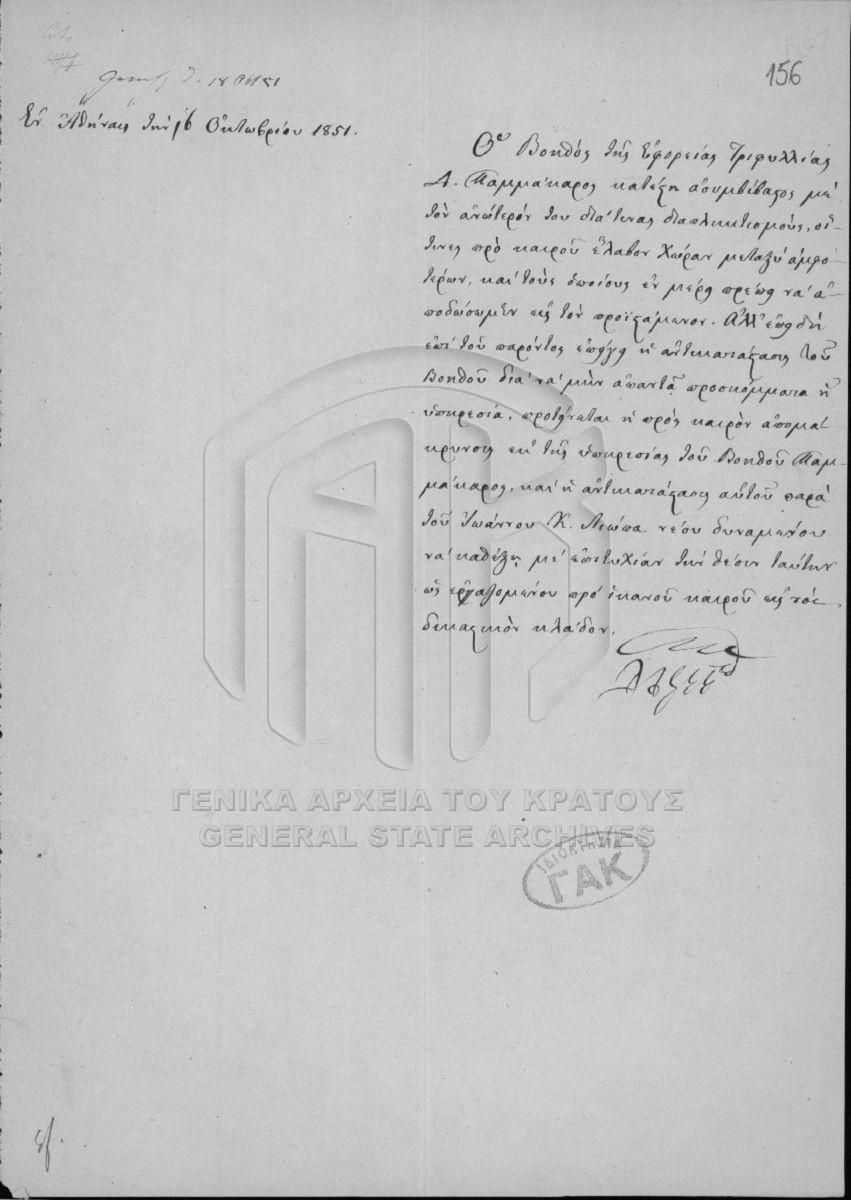 156
18
Ἐν Ἀθήναις τὴν 16 Ὀκτωβρίου 1851.
Ὁ Βοηθὸς τῆς Ἐφορείας Τριφυλλίας
Παμμάκαρος κατέστη ἀσυμβίβαστος μὲ
τὸν ἀνώτερόν του διά τινας διαπληκτισμούς, οἵ-
τινες πρὸ καιροῦ ἔλαβον χώραν μεταξὺ ἀμφο-
τέρων, καὶ τοὺς ὁποίους ἐν μέρει πρέπει νὰ ἀ-
ποδώσωμεν εἰς τὸν προϊστάμενον. Ἀλλ' ἐπειδὴ
ἐπὶ τοῦ παρόντος ἐπείγει ἡ ἀντικατάστασις τοῦ
Βοηθοῦ διὰ νὰ μὴν ἀπαντᾷ προσκόμματα ἡ
ὑπηρεσία, προτείνεται ἡ πρὸς καιρὸν ἀπομά-
κρυνσις ἐκ τῆς ὑπηρεσίας τοῦ Βοηθοῦ Παμ-
μάκαρος, καὶ ἡ ἀντικατάστασις αὐτοῦ παρὰ
τοῦ Ἰωάννου Κ. νέου δυναμένου
νὰ καθέξῃ μὲ ἐπιτυχίαν τὴν θέσιν ταύτην
ὡς ἐργαζομένου πρὸ ἱκανοῦ καιροῦ εἰς τὸν
δικαστικὸν κλάδον.
ΓΕΝΙΚΑ ΑΡΧΕΙΑ ΤΟΥ ΚΡΑΤΟΥΣ
GENERAL STATE ARCHIVES
ΙΔΙΟΚΤΗΣΙΑ
ΓΑΚ